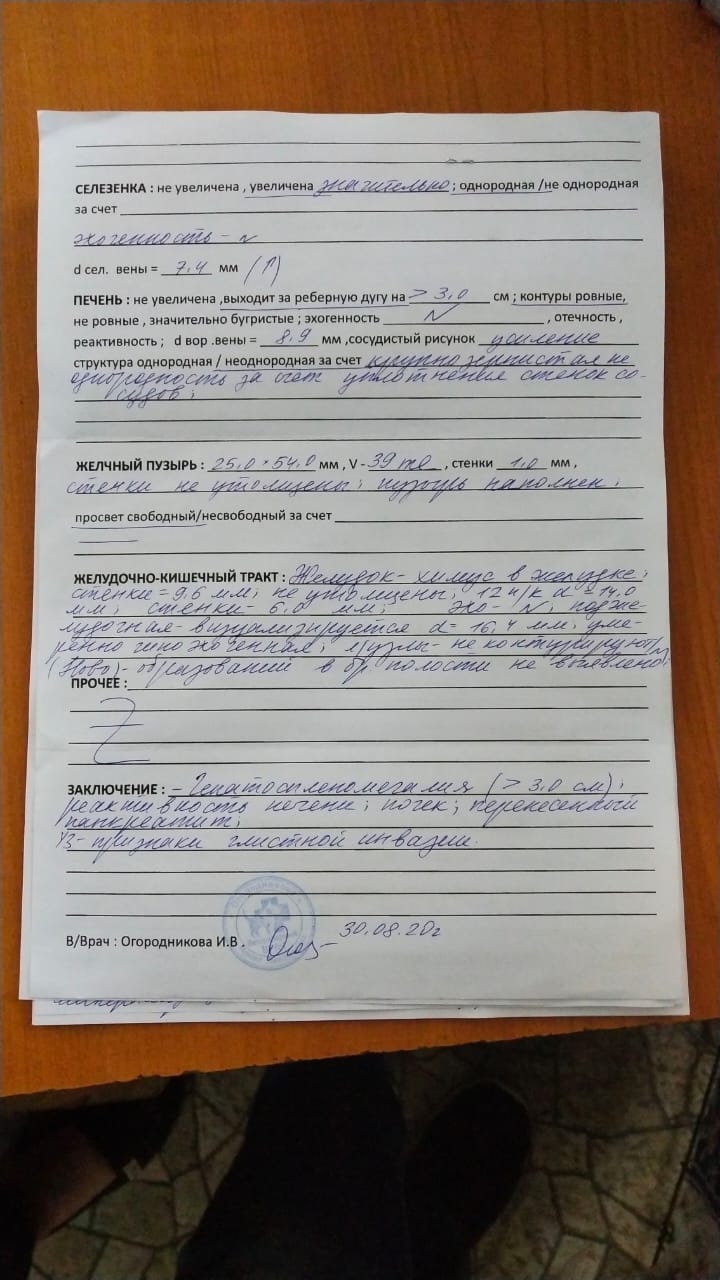 СЕЛЕЗЕНКА : не увеличена , увеличена значительно ; однородная /не однородная
за счет
эхогенность – N
d сел. вены = 7,4 мм (↑)
ПЕЧЕНЬ : не увеличена ,выходит за реберную дугу на > 3,0 см ; контуры ровные,
не ровные , значительно бугристые ; эхогенность N , отечность ,
реактивность ; d вор .вены = 8,9 мм ,сосудистый рисунок усиление
структура однородная / неоднородная за счет крупнозернистая не
однородность за счет уплотнения стенок со-
судов;
ЖЕЛЧНЫЙ ПУЗЫРЬ : 25,0 × 54,0 мм , V - 39 ml , стенки 1,0 мм ,
стенки не утолщены; пузырь наполнен;
просвет свободный/несвободный за счет
ЖЕЛУДОЧНО-КИШЕЧНЫЙ ТРАКТ : Желудок – химус в желудке;
стенки = 9,6 мм; не утолщены; 12 п/к d = 14,0
мм; стенки – 6,0 мм; эхо – N; подже-
лудочная – визуализируется d = 16,4 мм; уме-
ренно гипоэхогенная; л/узлы – не контурируют/ся
(Ново) – образований в бр. полости не выявлено;
ПРОЧЕЕ :
Z
ЗАКЛЮЧЕНИЕ : – Гепатоспленомегалия (> 3,0 см);
реактивность печени; почек; перенесенный
панкреатит;
УЗ – признаки глистной инвазии.
В/Врач : Огородникова И.В . 30.08.20г